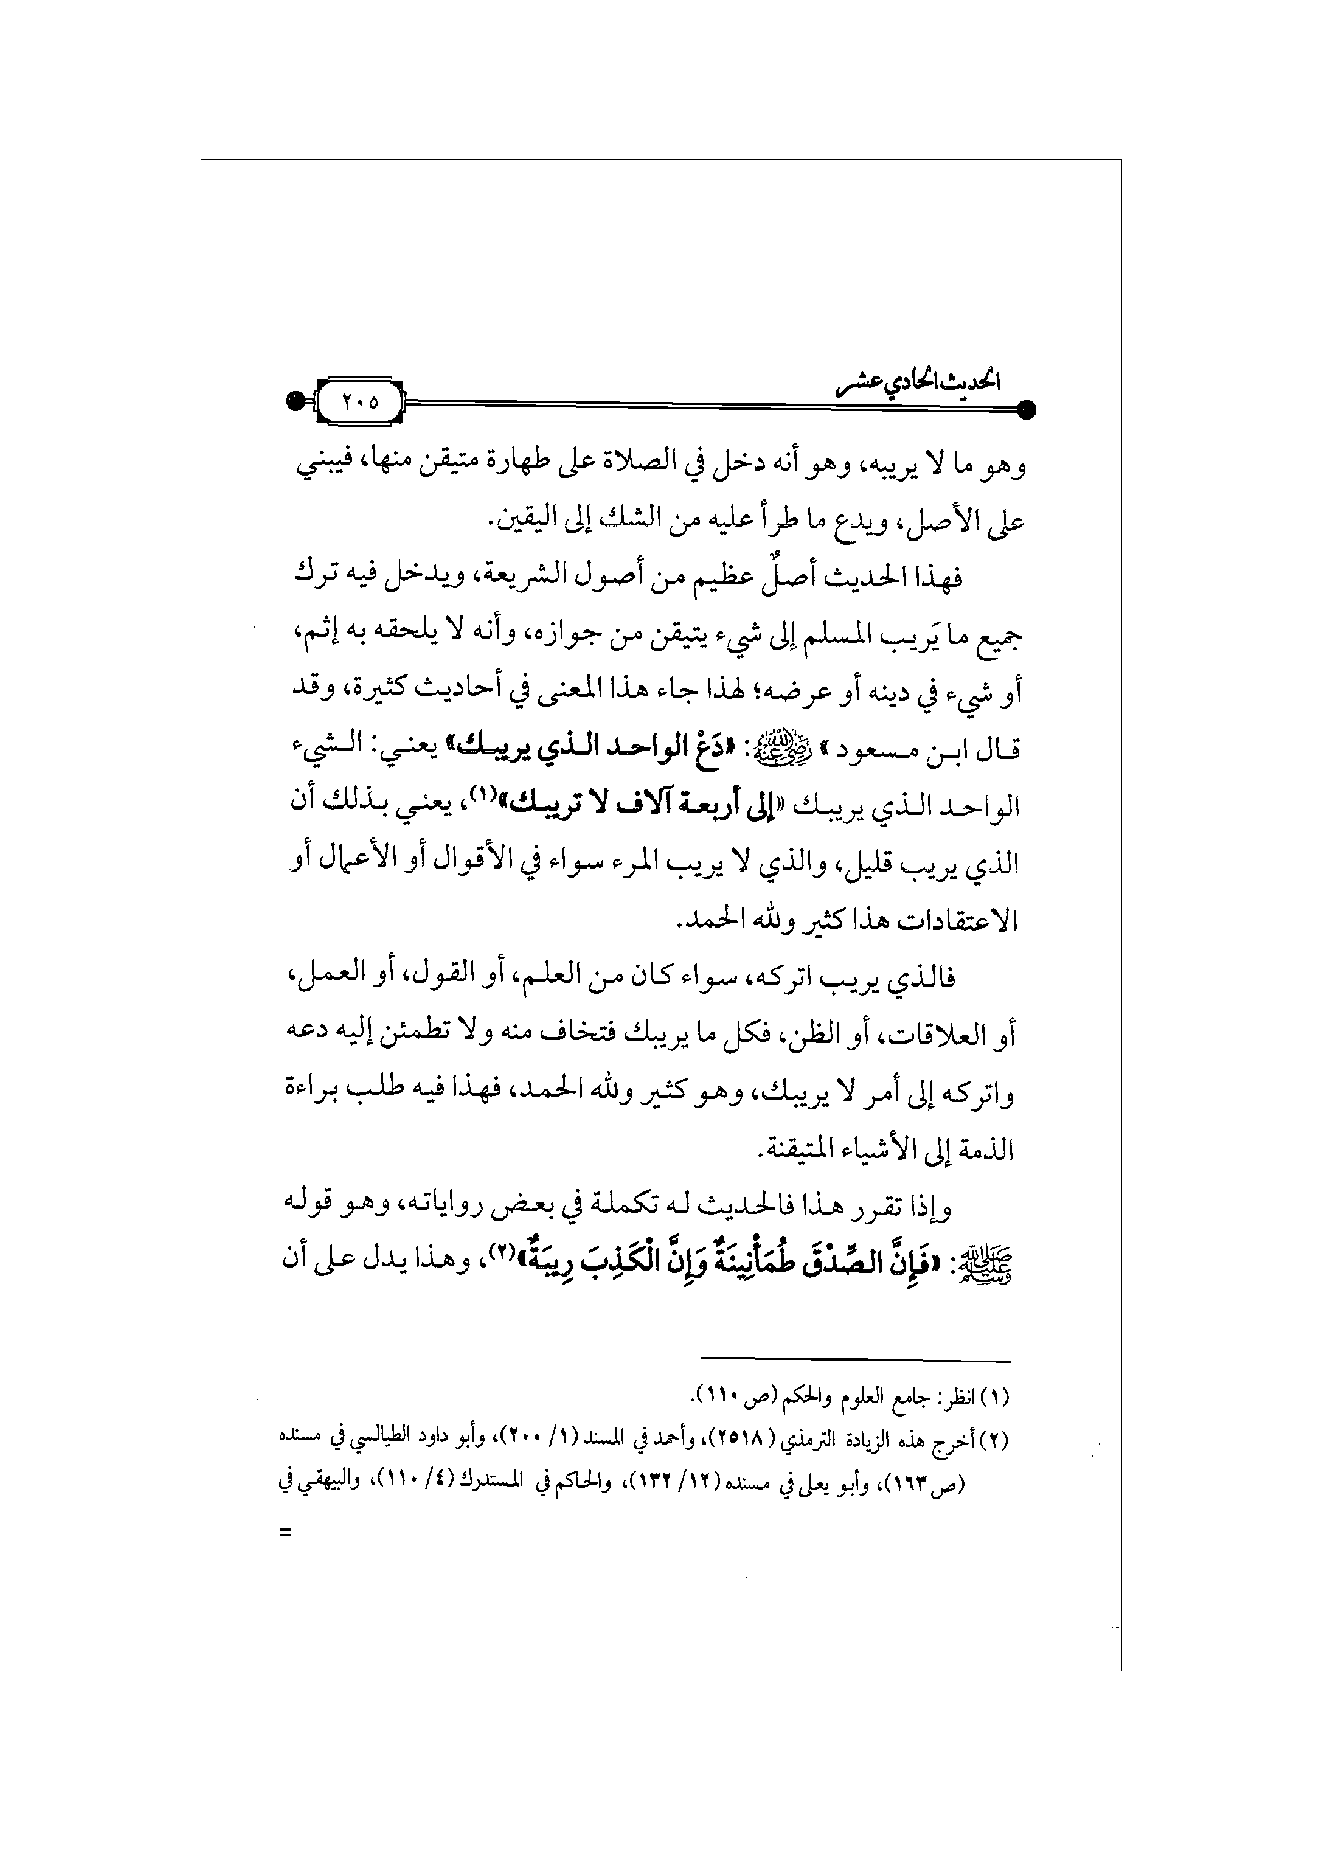 الحديث الحادي عشر
٢٠٥
وهو ما لا يريبه، وهو أنه دخل في الصلاة على طهارة متيقن منها، فيبني
على الأصل، ويدع ما طرأ عليه من الشك إلى اليقين.
فهذا الحديث أصلٌ عظيم من أصول الشريعة، ويدخل فيه ترك
جميع ما يَريب المسلم إلى شيء يتيقن من جوازه، وأنه لا يلحقه به إثم،
أو شيء في دينه أو عرضه؛ لهذا جاء هذا المعنى في أحاديث كثيرة، وقد
قال ابن مسعود » رضي الله عنه «: «دَعْ الواحد الذي يريبك» يعني: الشيء
الواحد الذي يريبك «إلى أربعة آلاف لا تريبك»(١)، يعني بذلك أن
الذي يريب قليل، والذي لا يريب المرء سواء في الأقوال أو الأعمال أو
الاعتقادات هذا كثير ولله الحمد.
فالذي يريب اتركه، سواء كان من العلم، أو القول، أو العمل،
أو العلاقات، أو الظن، فكل ما يريبك فتخاف منه ولا تطمئن إليه دعه
واتركه إلى أمر لا يريبك، وهو كثير ولله الحمد، فهذا فيه طلب براءة
الذمة إلى الأشياء المتيقنة.
وإذا تقرر هذا فالحديث له تكملة في بعض رواياته، وهو قوله
ﷺ: «فَإِنَّ الصِّدْقَ طُمَأْنِينَةٌ وَإِنَّ الْكَذِبَ رِيبَةٌ»(٢)، وهذا يدل على أن
(١) انظر: جامع العلوم والحكم (ص١١٠).
(٢) أخرج هذه الزيادة الترمذي (٢٥١٨)، وأحمد في المسند (١/ ٢٠٠)، وأبو داود الطيالسي في مسنده
(ص١٦٣)، وأبو يعلى في مسنده (١٢/ ١٣٢)، والحاكم في المستدرك (٤/ ١١٠)، والبيهقي في
=